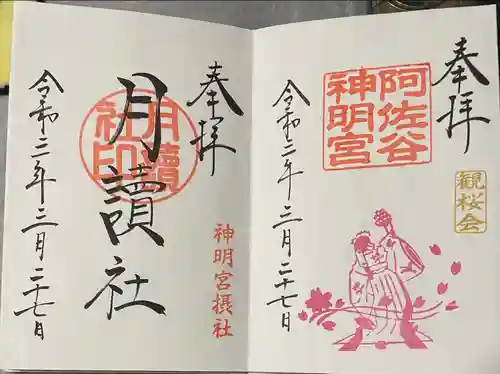 奉拝
阿佐谷
神明宮
観桜会
令和二年三月二十七日
奉拝
月讀社
月讀
社印
神明宮摂社
令和二年三月二十七日